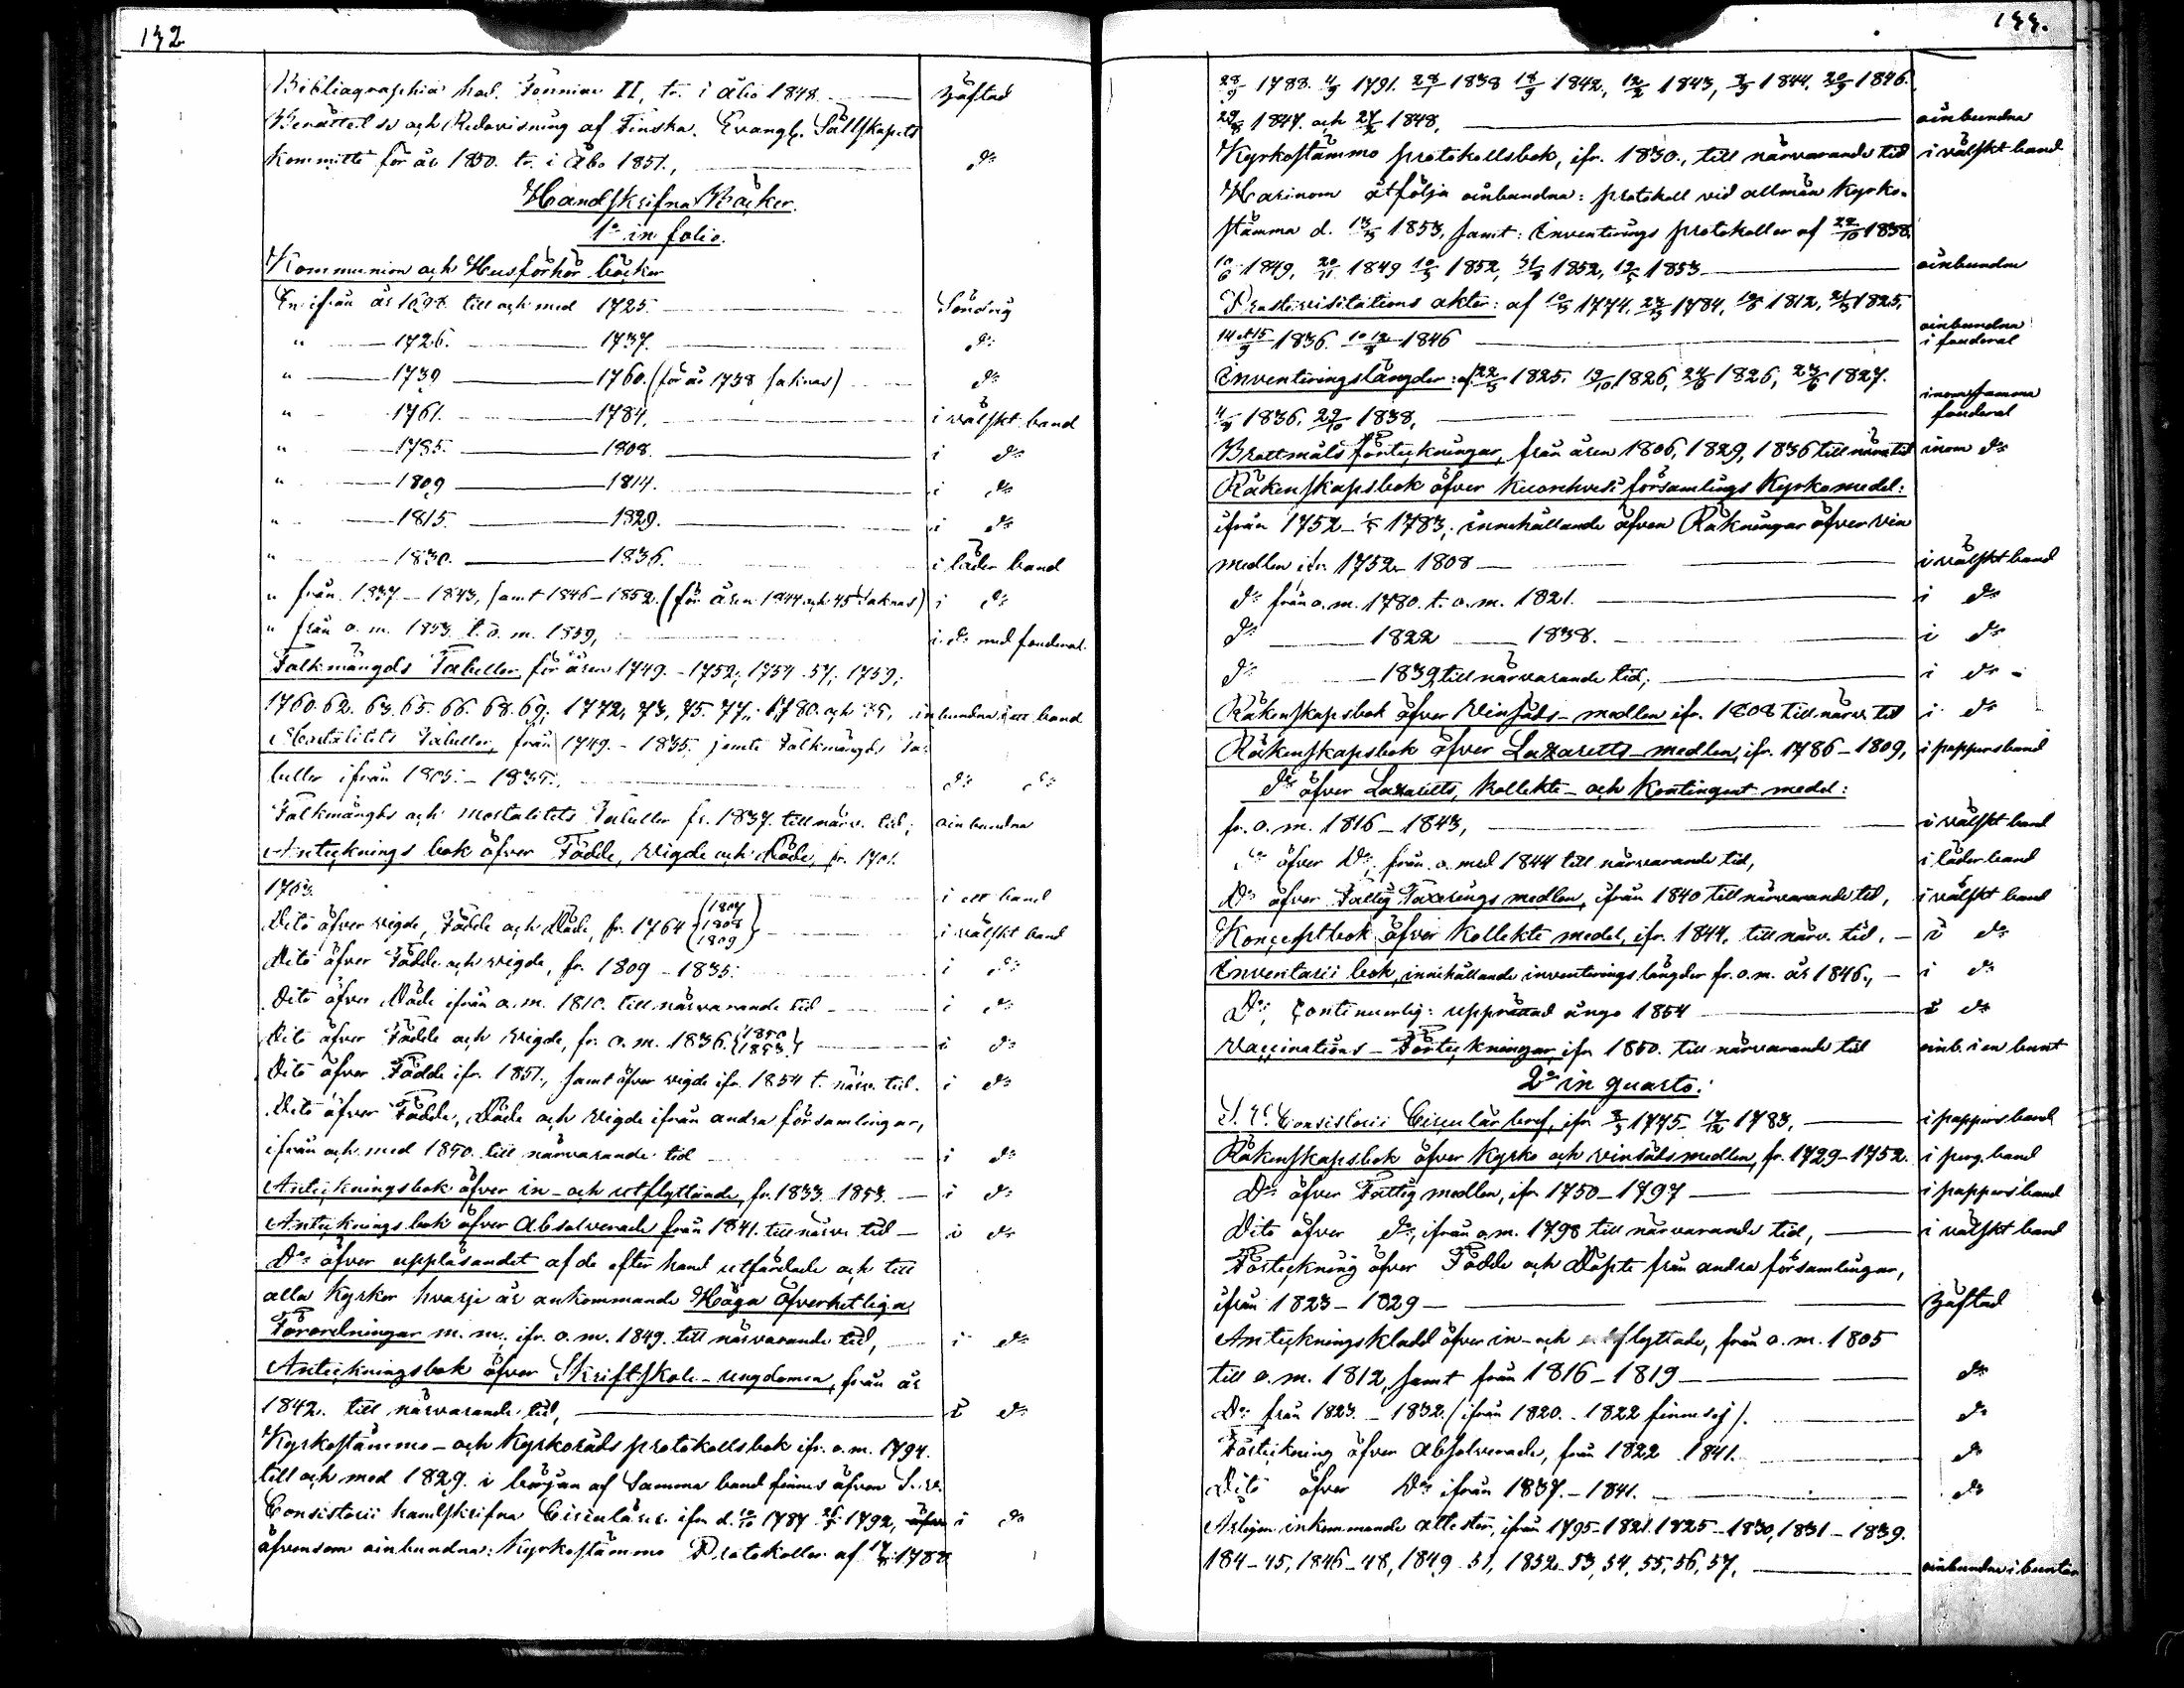 132
Bibliographia hod. Fenniae II, tr. i Åbo 1848. häftad
Berättelse och Redovisning af Finska Evangl. Sällskapets
Kommitté för år 1850. tr. i Åbo 1851., do
Handskrifna Böcker.
1o in folio.
Kommunion och Husförhör böcker
En ifrån år 1698 till och med 1725. Söndrig
" 1726. 1737. do
" 1739 1760. (för år 1738 saknas) do
" 1761. 1784. i välskt band
" 1785. 1808. i do
" 1809 1814. i do
" 1815. 1829. i do
" 1830. 1836. i läder band
" från 1837-1843, samt 1846-1852. (för åren 1844 och 45 saknas) i do
" från o. m. 1853. t. o. m. 1859, i do med fouderal.
Folkmängds Tabeller för åren 1749.-1752; 1754-57; 1759;
1760. 62. 63. 65. 66. 68. 69; 1772, 73, 75. 77; 1780. och 85, inbundna i ett band
Mortalitets Tabeller, från 1749.-1835. jemte Folkmängds Ta-
beller ifrån 1805.-1835. do do
Folkmängds och Mortalitets Tabeller fr. 1837. till närv. tid; oinbundna
Antecknings bok öfver Födde, vigde och Döde, fr. 1701.
1763. i ett band
Dito öfver vigde, Födde och Döde, fr. 1764 {1807 1808 1809} i välskt band
Dito öfver Födde och vigde, fr. 1809-1835. i do
Dito öfver Döde ifrån o. m. 1810. till närvarande tid i do
Dito öfver Födde och vigde, fr. o. m. 1836. {1850 1853.} i do
Dito öfver Födde ifr. 1851., samt öfver vigde ifr. 1854 t. närv. tid. i do
Dito öfver Födde, Döde och vigde ifrån andra församlingar,
ifrån och med 1850. till närvarande tid i do
Anteckningsbok öfver in- och utflyttande, fr. 1833-1853. i do
Antecknings bok öfver Absolverade från 1841. till närv. tid i do
Do öfver uppläsandet af de efter hand utfärdade och till
alla Kyrkor hvarje år ankommande Höga Öfverhetliga
Förordningar m. m., ifr. o. m. 1849. till närvarande tid, i do
Anteckningsbok öfver Skriftskole-ungdomen, från år
1842. till närvarande tid, i do
Kyrkostämmo- och Kyrkoråds protokollsbok ifr. o. m. 1794.
till och med 1829. i början af Samma band finnes äfven S. V.
Consistorii handskrifna Circulärer ifr. d. 1787 1792, äfven i do
äfvensom oinbundna: Kyrkostämmo Protokoller af 1788
133.
28/9 1788. 4/9 1791. 28/7 1838 18/9 1842, 12/2 1843, 1844. 20/9 1846.
29/8 1847. och 27/2 1848, oinbundna
Kyrkostämmo protokollsbok, ifr. 1830., till närvarande tid i välskt band
Härinom åtfölja oinbundna: protokoll vid allmän Kyrko-
stämma d. 13/3 1853, samt: Inventerings protokoller af 22/10 1838.
10/6 1849, 20/11 1849 1852, 1852, 1853 oinbundna
Prosterisitations akter: af 1774, 1784, 1812, 1825,
1836. 1846 oinbundna i fouderal
Inventeringslängder: af 22/3 1825. 19/10 1826, 1826, 23/6 1827.
1836. 29/10 1838, inom samma fouderal
Brottmåls Förteckningar, från åren 1806, 1829, 1836 till närv. tid inom do
Räkenskapsbok öfver församlings Kyrkomedel:
ifrån 1752- 1783, innehållande äfven Räkningar öfver vin
medlen ifr. 1752-1808 i välskt band
do från o. m. 1780. t. o. m. 1821. i do
do 1822 1838. i do
do 1839 till närvarande tid; i do
Räkenskapsbok öfver Vinsäds-medlen ifr. 1808 till närv. tid i do
Räkenskapsbok öfver Lazaretts-medlen, ifr. 1786-1809, i pappersband
do öfver Lazaretts, Kollekte- och Kontingent medel:
fr. o. m. 1816-1843, i välskt band
do öfver do, från o. med 1844 till närvarande tid, i läder band
Do öfver Fattig Taxerings medlen, ifrån 1840 till närvarande tid, i välskt band
Konceptbok öfver Kollekte medel, ifr. 1844. till närv. tid. i do
Inventarii bok, innehållande inventerings längder fr. o. m. år 1846., i do
Do, Continuerlig: upprättad ungo 1854 i do
Vaccinations-Förteckningar ifr. 1850. till närvarande tid oinb. i en bunt
2o in quarto.
S. V. Consistorii Circulär bref, ifr. 1775- 1783, i pappers band
Räkenskapsbok öfver Kyrko och vinsädsmedlen, fr. 1729-1752. i perg. band
Do öfver Fattig medlen, ifr. 1750-1797 i pappers band
Dito öfver do, ifrån o. m. 1798 till närvarande tid, i välskt band
Förteckning öfver Födde och Döpte från andra församlingar,
ifrån 1823-1829 häftad
Anteckningskladd öfver in- och utflyttade, från o. m. 1805
till o. m. 1812, samt från 1816-1819 do
Do från 1823.-1832. /ifrån 1820.-1822 finnes ej/. do
Förteckning öfver Absolverade, från 1822 1841. do
Dito öfver Do ifrån 1837.-1841. do
Årligen inkommande attester, ifrån 1795-1821. 1825-1830, 1831-1839.
184-45, 1846-48, 1849-51, 1852-53, 54, 55, 56, 57, oinbundna i buntar